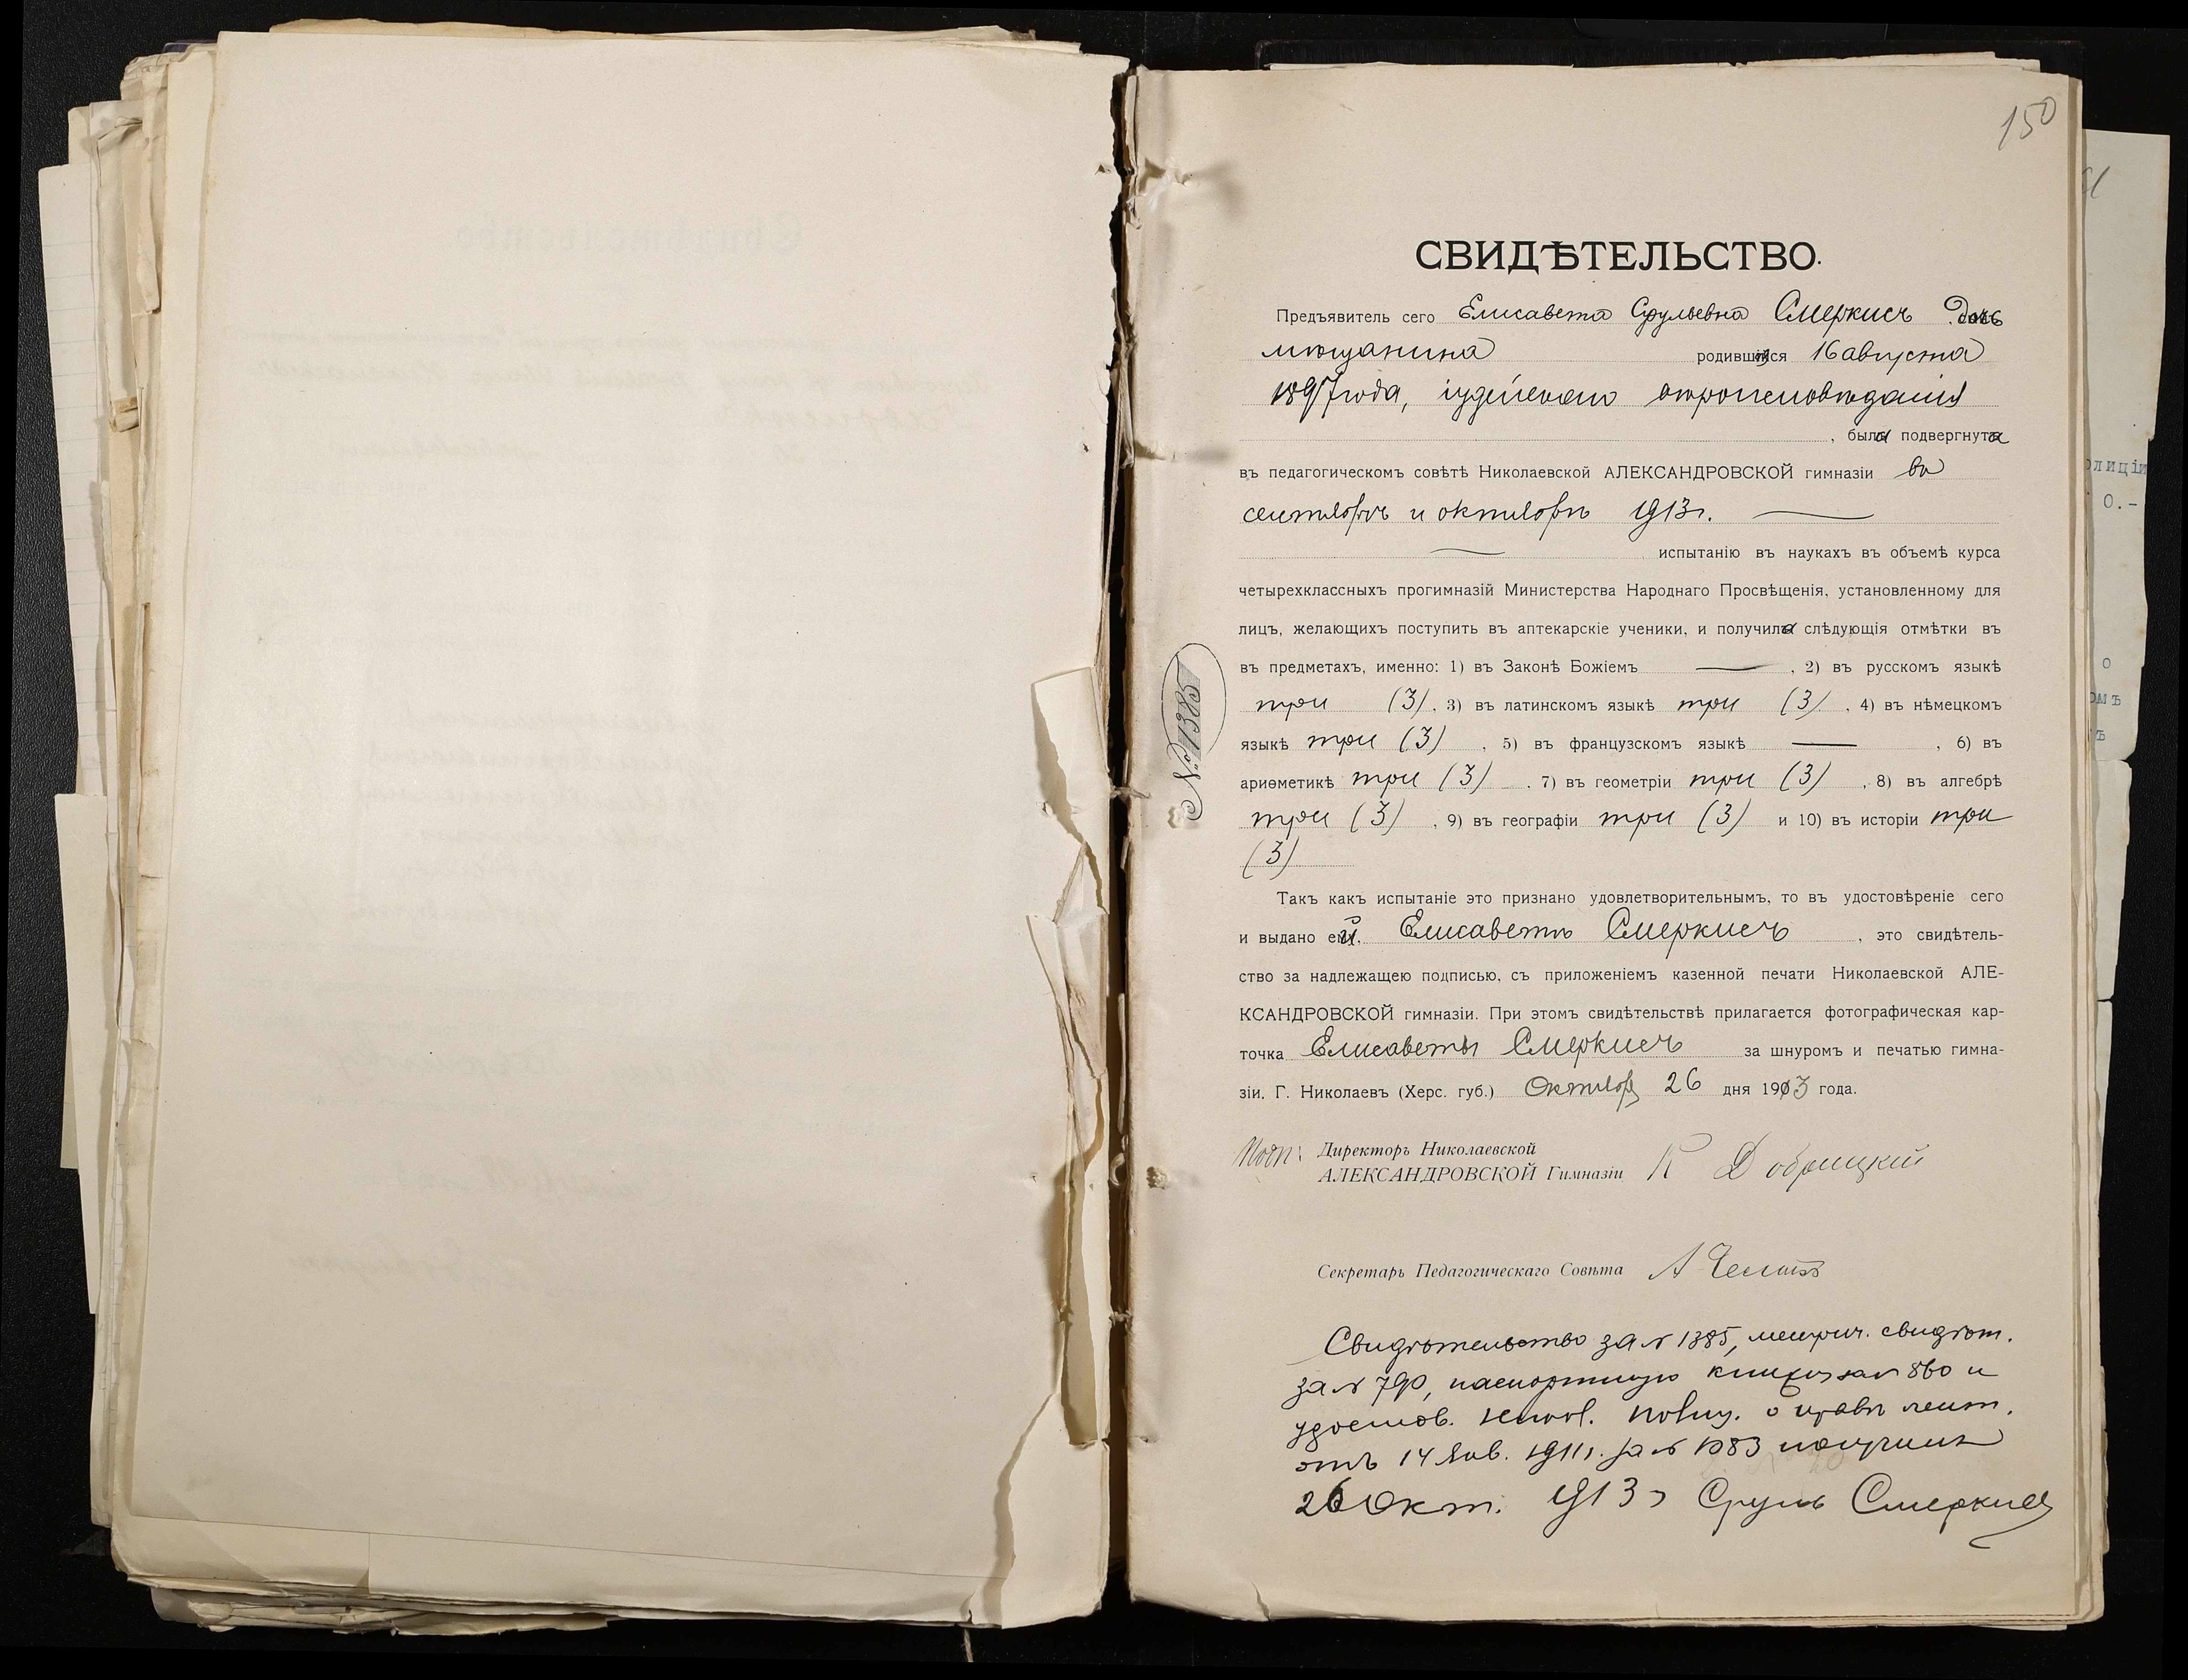 150
СВИДѢТЕЛЬСТВО.
Предъявитель сего Елисавета Срульевна Смеркисъ дочь
мѣщанина родившаяся 16 августа
1897 года, іудейскаго вѣроисповѣданія
, была подвергнута
въ педагогическомъ совѣтѣ Николаевской АЛЕКСАНДРОВСКОЙ гимназіи въ
сентябрѣ и октябрѣ 1913 г.
испытанію въ наукахъ въ объемѣ курса
четырехклассныхъ прогимназій Министерства Народнаго Просвѣщенія, установленному для
лицъ, желающихъ поступить въ аптекарскіе ученики, и получила слѣдующія отмѣтки въ
въ предметахъ, именно: 1) въ Законѣ Божіемъ — , 2) въ русскомъ языкѣ
три (3), 3) въ латинскомъ языкѣ три (3) , 4) въ нѣмецкомъ
языкѣ три (3) , 5) въ французскомъ языкѣ — , 6) въ
ариѳметикѣ три (3) , 7) въ геометріи три (3) , 8) въ алгебрѣ
три (3) , 9) въ географіи три (3) и 10) въ исторіи три
(3)
№ 1385
Такъ какъ испытаніе это признано удовлетворительнымъ, то въ удостовѣреніе сего
и выдано ей, Елисаветѣ Смеркисъ , это свидѣтель-
ство за надлежащею подписью, съ приложеніемъ казенной печати Николаевской АЛЕ-
КСАНДРОВСКОЙ гимназіи. При этомъ свидѣтельствѣ прилагается фотографическая кар-
точка Елисаветы Смеркисъ за шнуромъ и печатью гимна-
зіи. Г. Николаевъ (Херс. губ.) Октября 26 дня 1913 года.
Подп: Директоръ Николаевской
АЛЕКСАНДРОВСКОЙ Гимназіи К Добрицкій
Секретарь Педагогическаго Совѣта А
Свидѣтельство за № 1385, метрич. свидѣт.
за № 790, паспортную книжку за № 860 и
удостов. полиц. о правѣ жит.
отъ 14 Янв. 1911 г. за № 1083 получилъ
26 Окт. 1913 г Сруль Смеркисъ